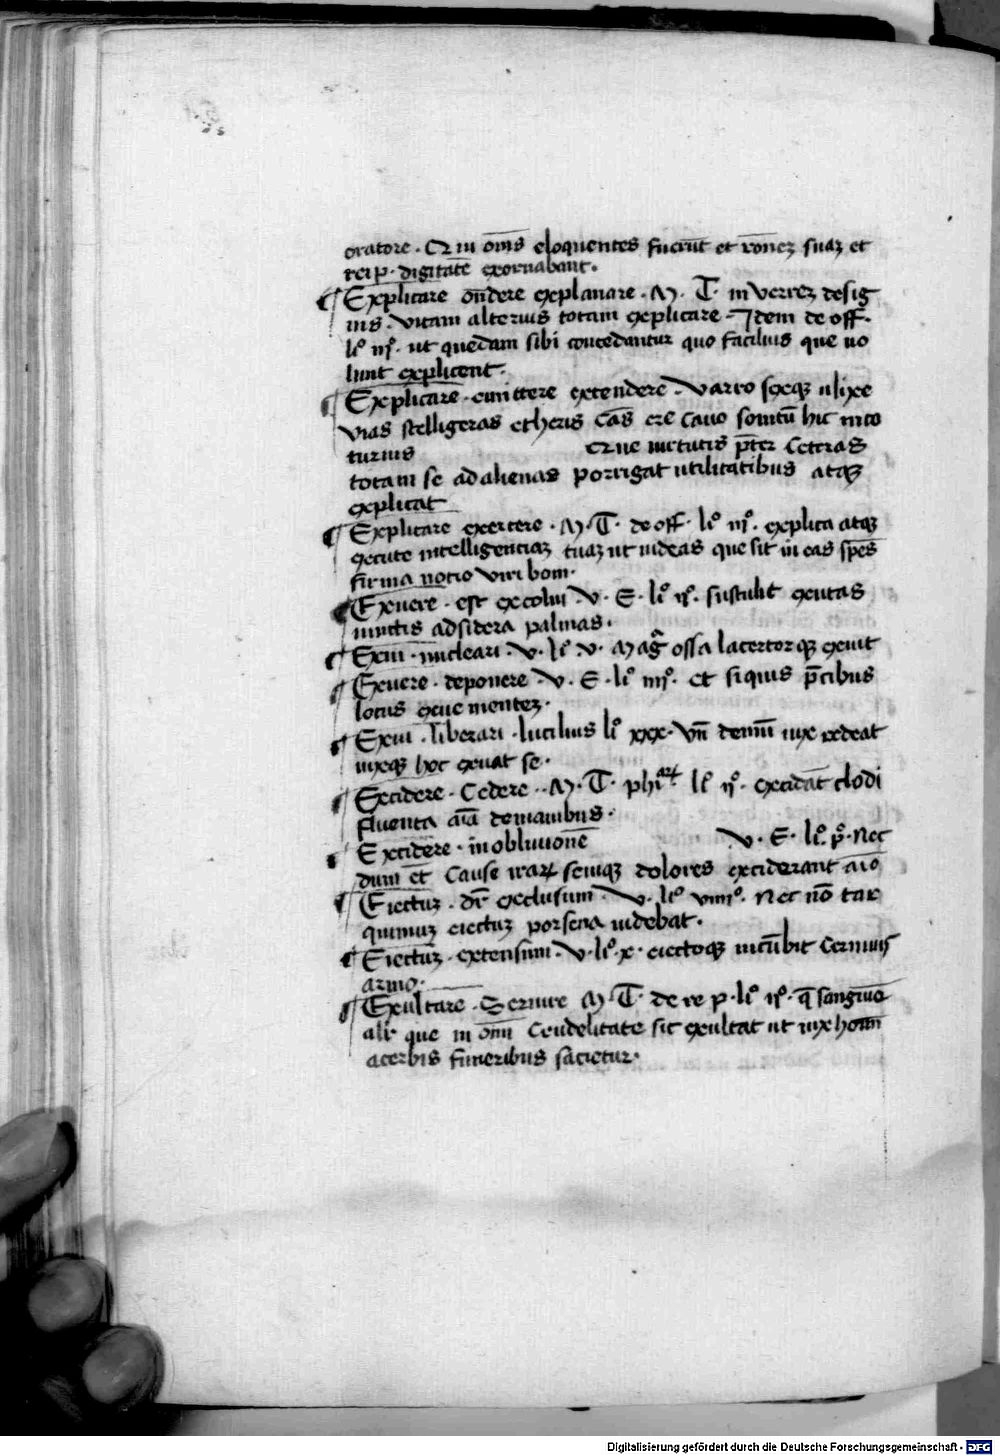 oratore · Qui om̄s eloquentes fuerūt et rōnez suaz et
rei p · digitatē exornabant ·
Explicare on̄dere explanare · M · T · in verrez de sig
nis · vitam alterius totam explicare · Idem de off ·
li° iij° · ut quedam sibi concedantur quo facilius que uo
lunt explicent ·
Explicare · emittere extendere · varro sexq ulixe
vias stelligeras etheris cās ere cauo sonitū hic in co
turius Que uirtutis pr̄ter Ceteras
totam se ad alienas porrigat utilitatibus atq
explicat
Explicare exercere · M · T · de off · li° iij° · explica atq
excute intelligentiaz tuaz ut uideas que sit in eas sp̄es
firma notio viri boni ·
Exuere · est exsolui · v · E · li° ij° · sustulit exutas
uinctis ad sidera palmas ·
Exui · nucleari · v · li° v · Magᷓ ossa lacertorq exuit
Exuere · deponere · v · E · li° iiij° · et siquis p̄cibus
locus exue mentez ·
Exui · liberari · lucilius li° xxx · Vn̄ demū uix redeat
uixq hoc exuat se ·
Excidere · Cedere · M · T · phi li° ij° · excidāt clodi
fluenta de manibus ·
Excidere · in obliuionē v · E · li° p° · Nec
dum et Cause irarꝝ seuiq dolores exciderant aīo
Eiectuz · dr̄ exclusum · v · li° viiij° · Nec nō tar
quinuz eiectuz porsena iudebat ·
Eiectuz · extensum · v · li° x · eiectoq incūbit Cernuus
armo ·
Exultare · Seruire M · T · de re p · li° ij° · q̄ sanguīe
alr que in om̄i Crudelitate sic exultat ut uix hoim̄
acerbis funeribus sacietur ·
Digitalisierung gefördert durch die Deutsche Forschungsgemeinschaft - DFG